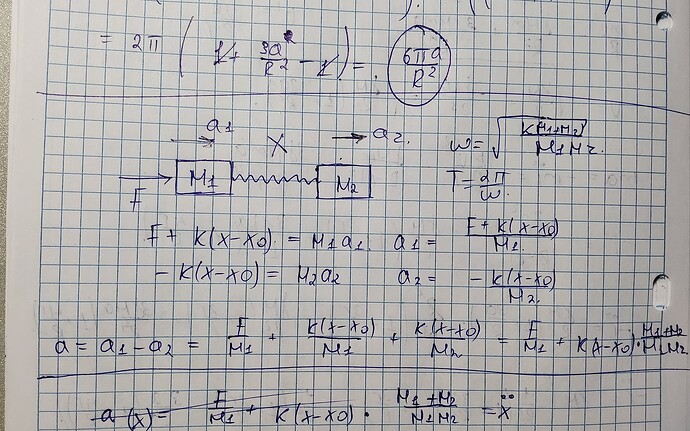 = 2π ( 1 + 3a²/R² − 1 ) = 6πa/R²
a1 X a2.
F M1 M2
ω = √(K(M1+M2)/M1M2)
T = 2π/ω
F + K(x−x0) = M1a1 a1 = F+K(x−x0)/M1.
−K(x−x0) = M2a2 a2 = −K(x−x0)/M2.
a = a1 − a2 = F/M1 + K(x−x0)/M1 + K(x−x0)/M2 = F/M1 + K(x−x0)·M1+M2/M1M2
a(x) = F/M1 + K(x−x0) · M1+M2/M1M2 = ẍ